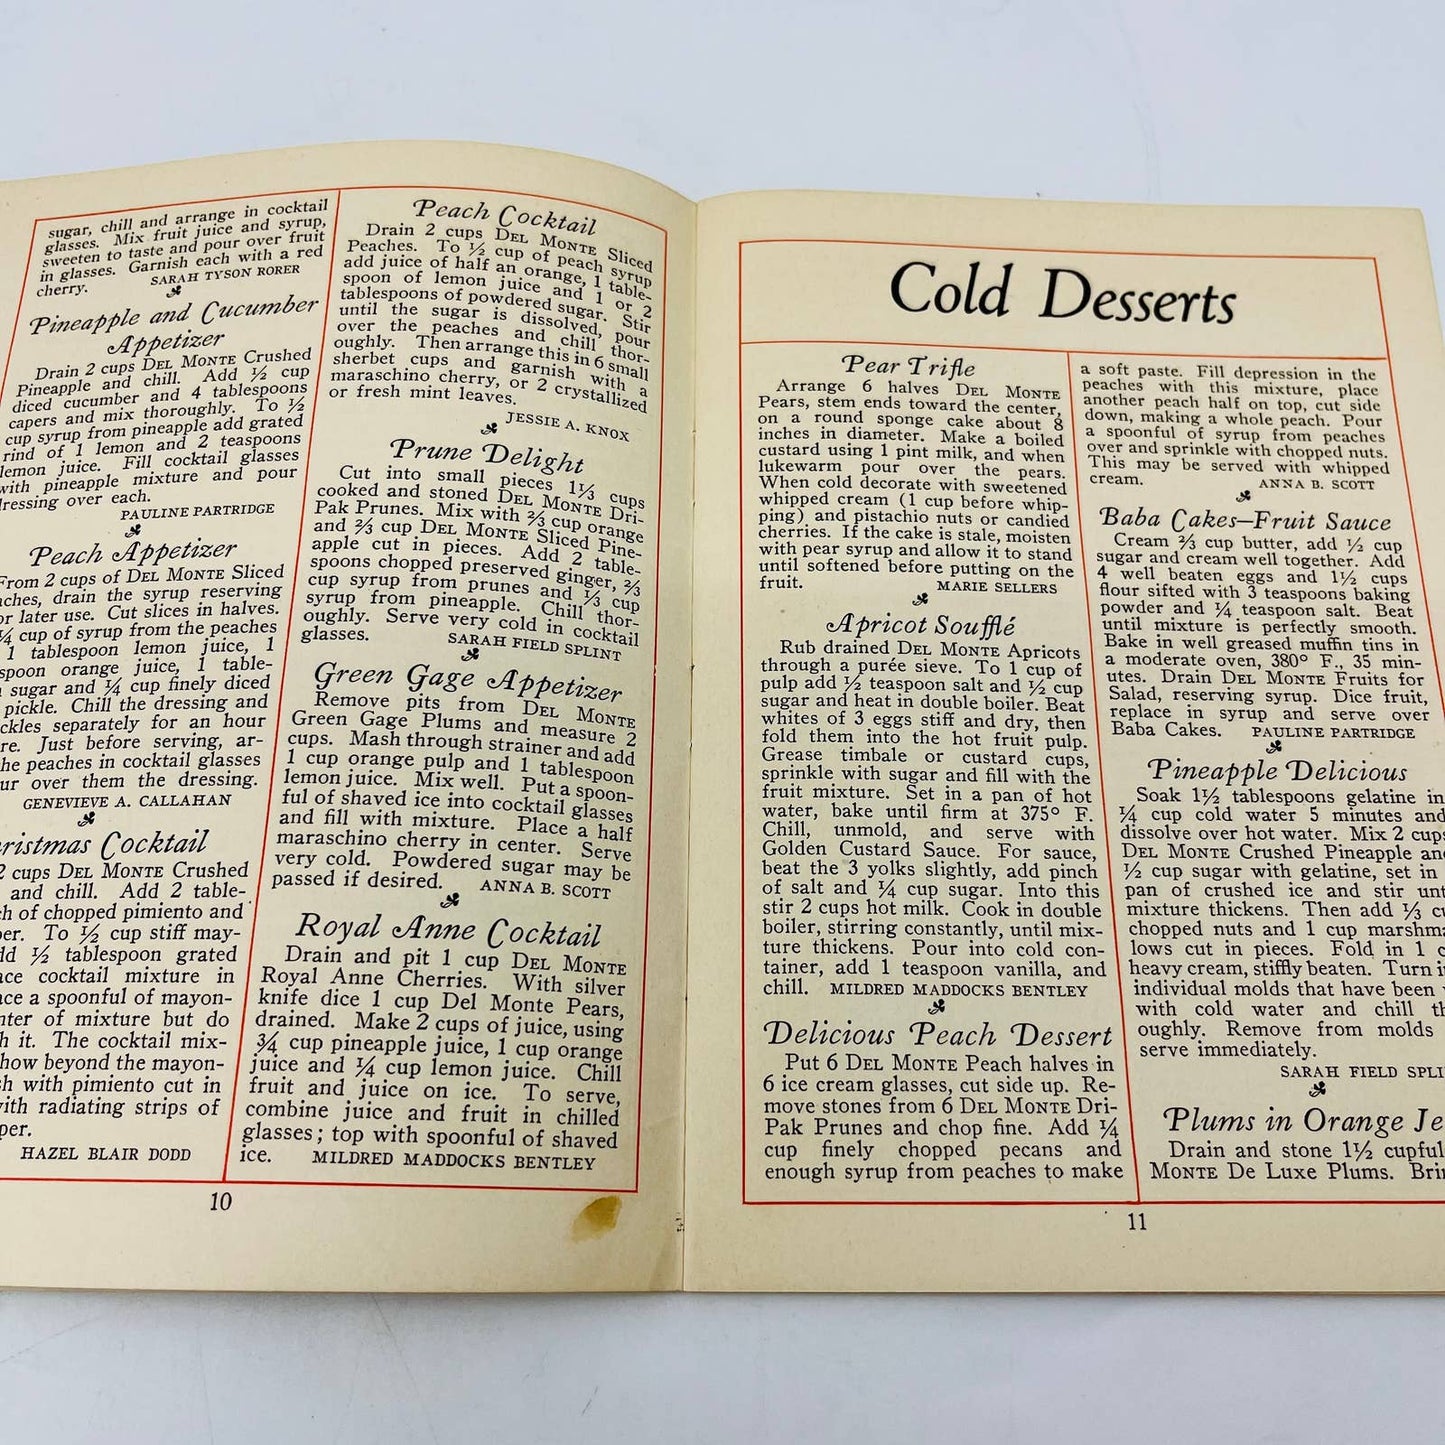 sugar, chill and arrange in cocktail
glasses. Mix fruit juice and syrup,
sweeten to taste and pour over fruit
in glasses. Garnish each with a red
cherry. SARAH TYSON RORER
Pineapple and Cucumber
Appetizer
Drain 2 cups DEL MONTE Crushed
Pineapple and chill. Add ½ cup
diced cucumber and 4 tablespoons
capers and mix thoroughly. To ½
cup syrup from pineapple add grated
rind of 1 lemon and 2 teaspoons
lemon juice. Fill cocktail glasses
with pineapple mixture and pour
dressing over each.
PAULINE PARTRIDGE
Peach Appetizer
From 2 cups of DEL MONTE Sliced
aches, drain the syrup reserving
or later use. Cut slices in halves.
¼ cup of syrup from the peaches
1 tablespoon lemon juice, 1
spoon orange juice, 1 table-
sugar and ¼ cup finely diced
pickle. Chill the dressing and
ckles separately for an hour
re. Just before serving, ar-
he peaches in cocktail glasses
ur over them the dressing.
GENEVIEVE A. CALLAHAN
ristmas Cocktail
2 cups DEL MONTE Crushed
and chill. Add 2 table-
ch of chopped pimiento and
per. To ½ cup stiff may-
dd ½ tablespoon grated
ace cocktail mixture in
ace a spoonful of mayon-
nter of mixture but do
h it. The cocktail mix-
how beyond the mayon-
sh with pimiento cut in
with radiating strips of
pper.
HAZEL BLAIR DODD
Peach Cocktail
Drain 2 cups DEL MONTE Sliced
Peaches. To ½ cup of peach syrup
add juice of half an orange, 1 table-
spoon of lemon juice and 1 or 2
tablespoons of powdered sugar. Stir
until the sugar is dissolved, pour
over the peaches and chill thor-
oughly. Then arrange this in 6 small
sherbet cups and garnish with a
maraschino cherry, or 2 crystallized
or fresh mint leaves.
JESSIE A. KNOX
Prune Delight
Cut into small pieces 1⅓ cups
cooked and stoned DEL MONTE Dri-
Pak Prunes. Mix with ⅔ cup orange
and ⅔ cup DEL MONTE Sliced Pine-
apple cut in pieces. Add 2 table-
spoons chopped preserved ginger, ⅔
cup syrup from prunes and ⅓ cup
syrup from pineapple. Chill thor-
oughly. Serve very cold in cocktail
glasses. SARAH FIELD SPLINT
Green Gage Appetizer
Remove pits from DEL MONTE
Green Gage Plums and measure 2
cups. Mash through strainer and add
1 cup orange pulp and 1 tablespoon
lemon juice. Mix well. Put a spoon-
ful of shaved ice into cocktail glasses
and fill with mixture. Place a half
maraschino cherry in center. Serve
very cold. Powdered sugar may be
passed if desired. ANNA B. SCOTT
Royal Anne Cocktail
Drain and pit 1 cup DEL MONTE
Royal Anne Cherries. With silver
knife dice 1 cup Del Monte Pears,
drained. Make 2 cups of juice, using
¾ cup pineapple juice, 1 cup orange
juice and ¼ cup lemon juice. Chill
fruit and juice on ice. To serve,
combine juice and fruit in chilled
glasses; top with spoonful of shaved
ice. MILDRED MADDOCKS BENTLEY
10
Cold Desserts
Pear Trifle
Arrange 6 halves DEL MONTE
Pears, stem ends toward the center,
on a round sponge cake about 8
inches in diameter. Make a boiled
custard using 1 pint milk, and when
lukewarm pour over the pears.
When cold decorate with sweetened
whipped cream (1 cup before whip-
ping) and pistachio nuts or candied
cherries. If the cake is stale, moisten
with pear syrup and allow it to stand
until softened before putting on the
fruit. MARIE SELLERS
Apricot Soufflé
Rub drained DEL MONTE Apricots
through a purée sieve. To 1 cup of
pulp add ½ teaspoon salt and ½ cup
sugar and heat in double boiler. Beat
whites of 3 eggs stiff and dry, then
fold them into the hot fruit pulp.
Grease timbale or custard cups,
sprinkle with sugar and fill with the
fruit mixture. Set in a pan of hot
water, bake until firm at 375° F.
Chill, unmold, and serve with
Golden Custard Sauce. For sauce,
beat the 3 yolks slightly, add pinch
of salt and ¼ cup sugar. Into this
stir 2 cups hot milk. Cook in double
boiler, stirring constantly, until mix-
ture thickens. Pour into cold con-
tainer, add 1 teaspoon vanilla, and
chill. MILDRED MADDOCKS BENTLEY
Delicious Peach Dessert
Put 6 DEL MONTE Peach halves in
6 ice cream glasses, cut side up. Re-
move stones from 6 DEL MONTE Dri-
Pak Prunes and chop fine. Add ¼
cup finely chopped pecans and
enough syrup from peaches to make
a soft paste. Fill depression in the
peaches with this mixture, place
another peach half on top, cut side
down, making a whole peach. Pour
a spoonful of syrup from peaches
over and sprinkle with chopped nuts.
This may be served with whipped
cream. ANNA B. SCOTT
Baba Cakes—Fruit Sauce
Cream ⅔ cup butter, add ½ cup
sugar and cream well together. Add
4 well beaten eggs and 1½ cups
flour sifted with 3 teaspoons baking
powder and ¼ teaspoon salt. Beat
until mixture is perfectly smooth.
Bake in well greased muffin tins in
a moderate oven, 380° F., 35 min-
utes. Drain DEL MONTE Fruits for
Salad, reserving syrup. Dice fruit,
replace in syrup and serve over
Baba Cakes. PAULINE PARTRIDGE
Pineapple Delicious
Soak 1½ tablespoons gelatine in
¼ cup cold water 5 minutes and
dissolve over hot water. Mix 2 cups
DEL MONTE Crushed Pineapple and
½ cup sugar with gelatine, set in
pan of crushed ice and stir unt
mixture thickens. Then add ⅓ cu
chopped nuts and 1 cup marshma
lows cut in pieces. Fold in 1 c
heavy cream, stiffly beaten. Turn i
individual molds that have been
with cold water and chill th
oughly. Remove from molds
serve immediately.
SARAH FIELD SPLIN
Plums in Orange Je
Drain and stone 1½ cupful
MONTE De Luxe Plums. Brin
11